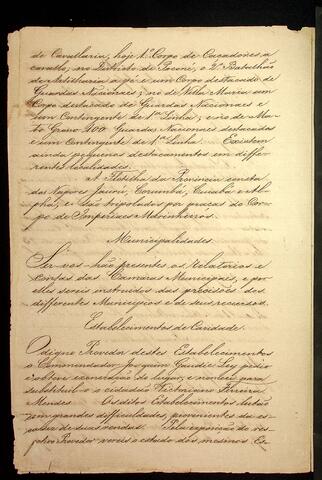 de Cavallaria, hoje 1º Corpo de Caçadores a
cavallo, no Districto de Poconé, o 2º Batalhão
de Artilharia a pé e um Corpo destacado de
Guardas Nacionaes; no de Villa Maria um
Corpo destacado de Guardas Nacionaes e
um Contingente de 1ª Linha; e no de Ma-
to Grosso 100 Guardas Nacionaes destacados
e um Contingente de 1ª Linha. Existem
ainda pequenos destacamentos em diffe-
rentes localidades.
A Flotilha da Provincia consta
dos Vapores Jaurú, Corumbá, Cuiabá e Al-
pha, e são tripolados por praças do Cor-
po de Imperiaes Marinheiros.
Municipalidades.
Ser-vos-hão presentes os relatorios e
contas das Camaras Municipaes, e por
elles sereis instruidos das precisões dos
differentes Municipios e de seus recursos.
Estabelecimentos de Caridade.
O digno Provedor destes Estabelecimentos
o Commendador Joaquim Gaudie Ley pedio
e obteve exoneração do lugar, e nomeei para
substituil-o o cidadão Victoriano Pereira
Mendes. Os ditos Estabelecimentos lutão
com grandes difficuldades, provenientes da es-
de suas rendas. Pela exposição do res-
pectivo Provedor vereis o estado dos mesmos Es-